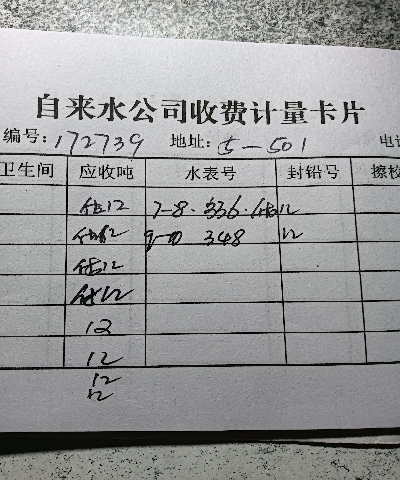 自来水公司收费计量卡片
编号: 172739 地址: 5-501 电
卫生间 应收吨 水表号 封铅号 擦校
12 7-8. 336. 12
12 9-10 348 12
12
12
12
12
12
12